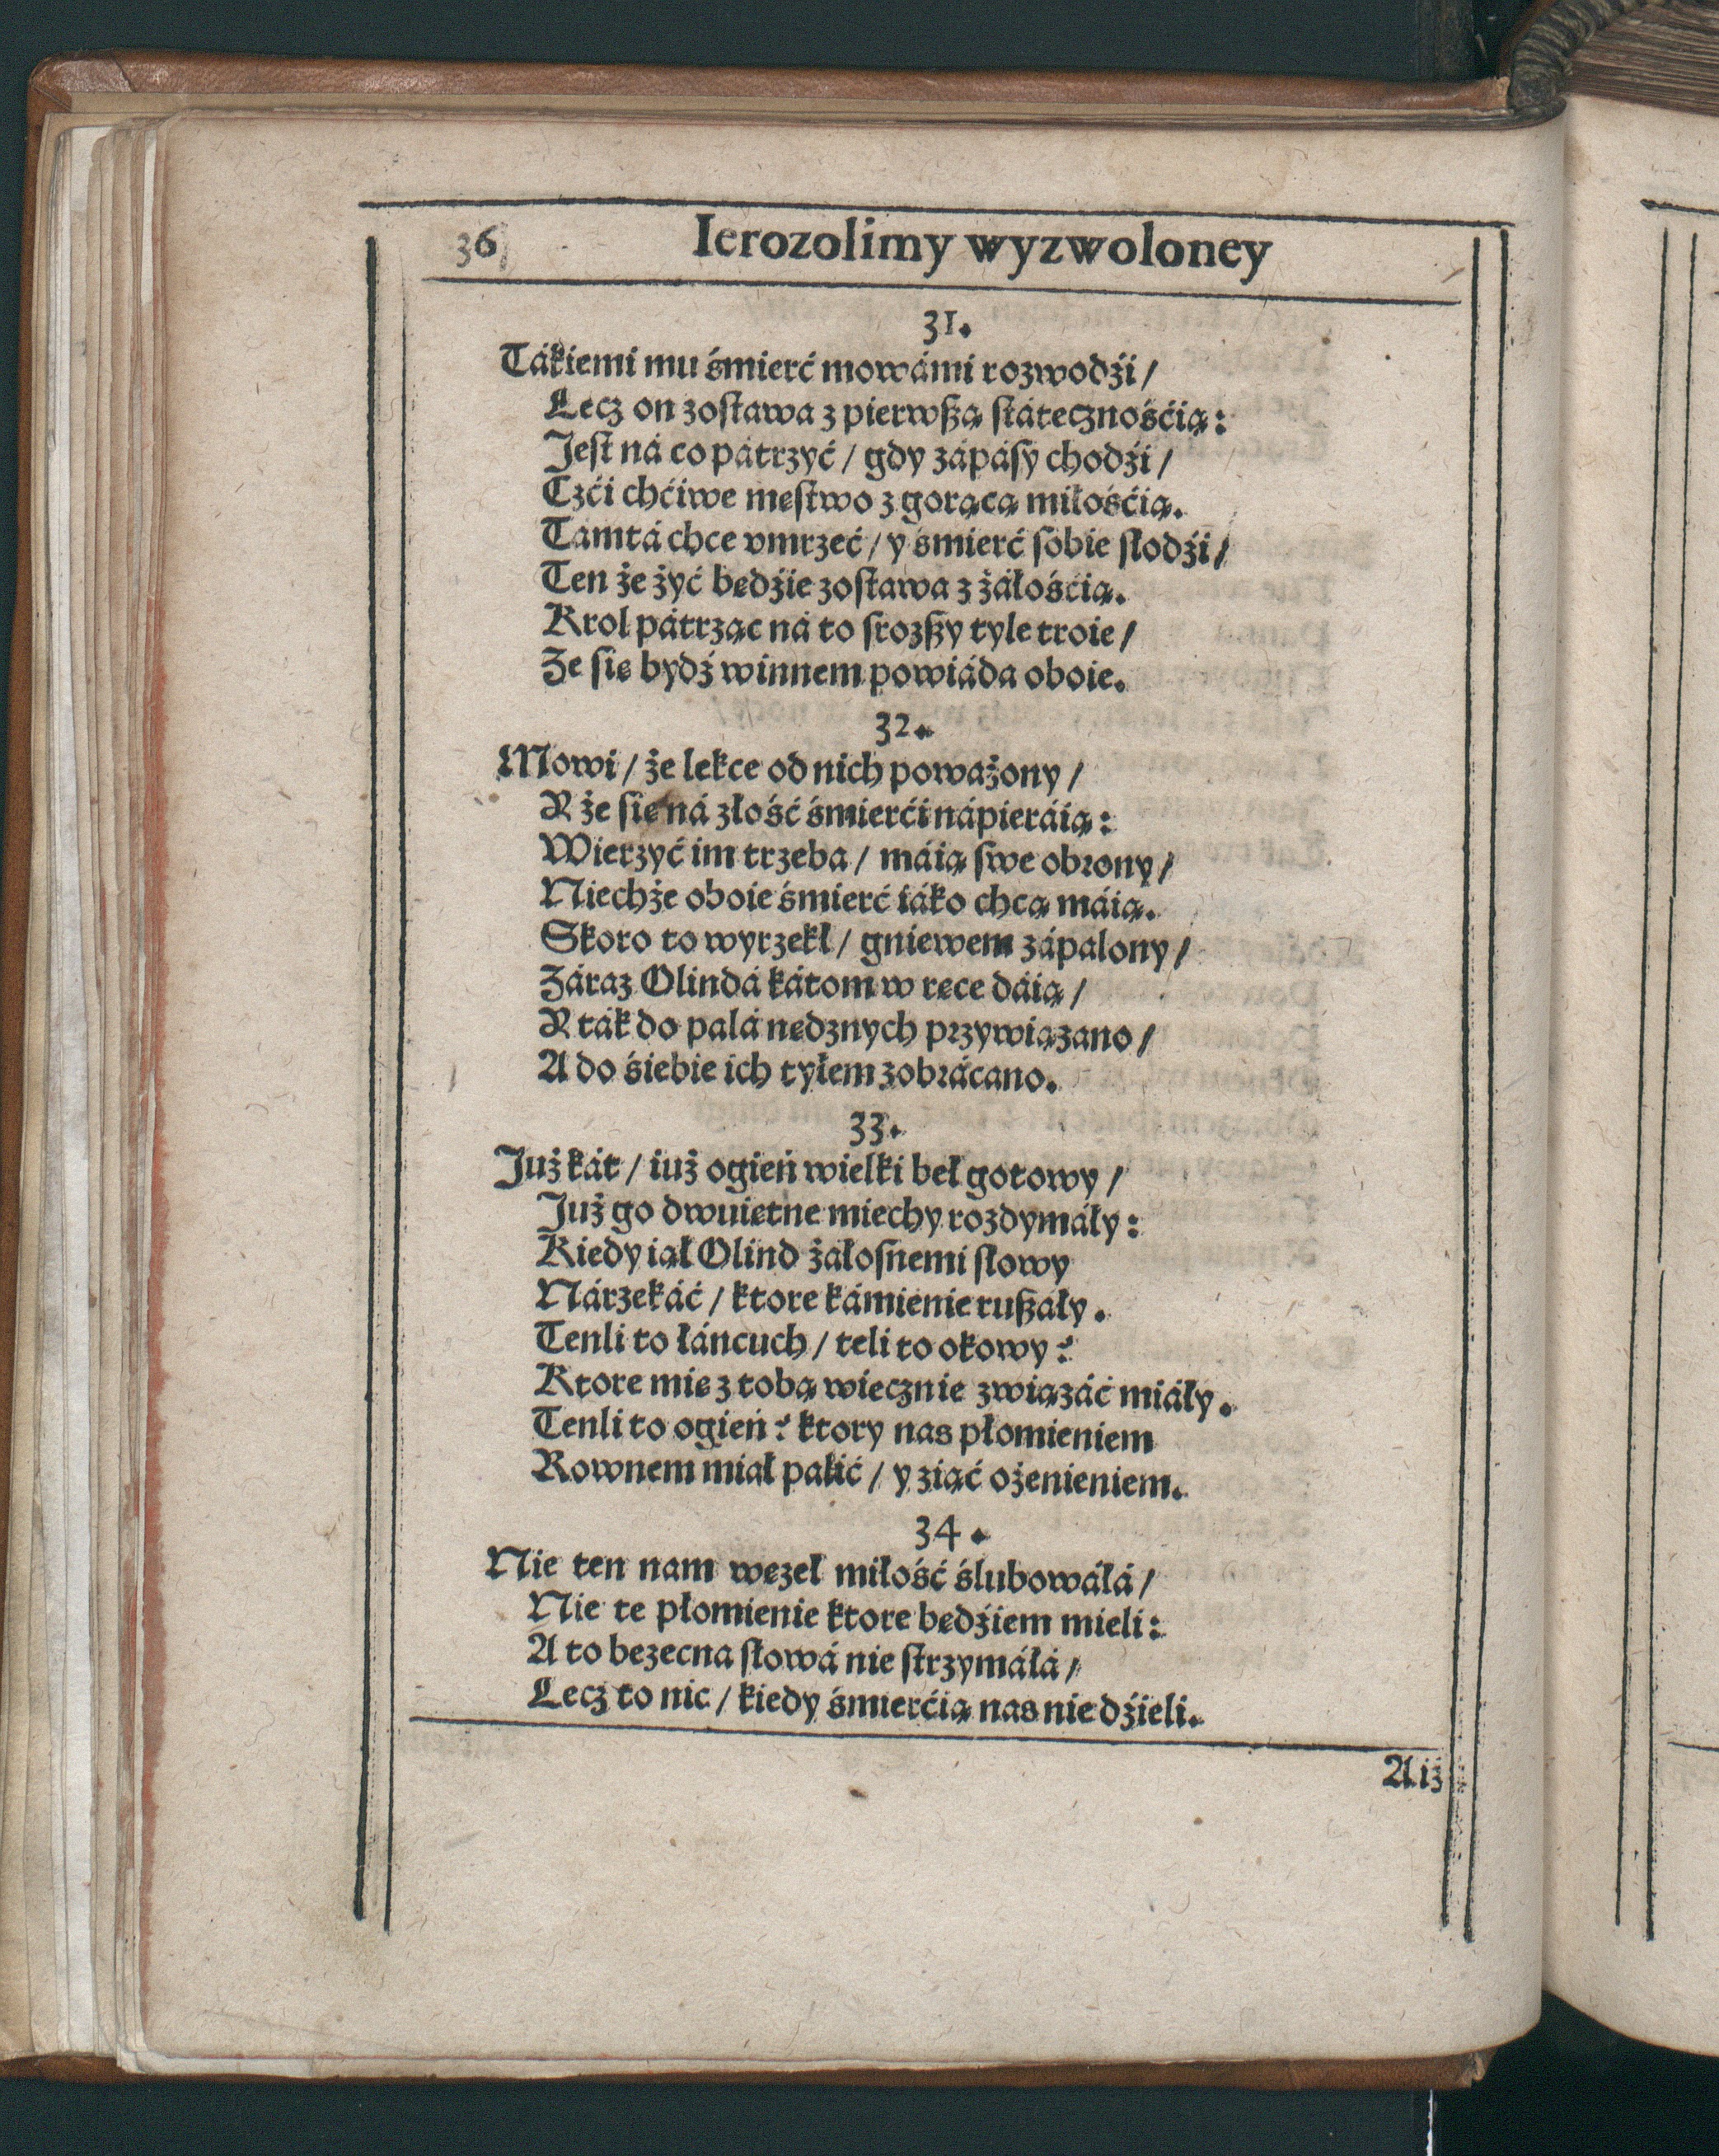 36 Ierozolimy wyzwoloney
31.
Tákiemi mu śmierć mowámi rozwodźi /
Lecz on zostawa z pierwßą státecznośćią:
Jest ná co pátrzyć / gdy zápásy chodźi /
Czći chćiwe męstwo z gorącą miłośćią.
Tamtá chce vmrzeć / y śmierć sobie słodźi /
Ten że żyć będźie zostawa z żáłośćią.
Krol pátrząc ná to srozßy tyle troie /
Że się bydź winnem powiáda oboie.
32.
Mowi / że lekce od nich poważony /
Y że się ná złość śmierći nápieráią:
Wierzyć im trzeba / máią swe obrony /
Niechże oboie śmierć iáko chcą máią.
Skoro to wyrzekł / gniewem zápalony /
Záraz Olindá kátom w ręce dáią /
Y ták do palá nędznych przywiązano /
A do śiebie ich tyłem zobrácano.
33.
Już kát / iuż ogień wielki beł gotowy /
Już go dwuiętne miechy rozdymáły:
Kiedy iął Olind żałosnemi słowy
Nárzekáć / ktore kámienie rußały.
Tenli to łáncuch / teli to okowy?
Ktore mię z tobą wiecznie związáć miáły.
Tenli to ogień? ktory nas płomieniem
Rownem miał palić / y ziąć ożenieniem.
34.
Nie ten nam węzeł miłość ślubowáłá /
Nie te płomienie ktore będźiem mieli:
A to bezecna słowá nie strzymáłá /
Lecz to nic / kiedy śmierćią nas nie dźieli.
A iż